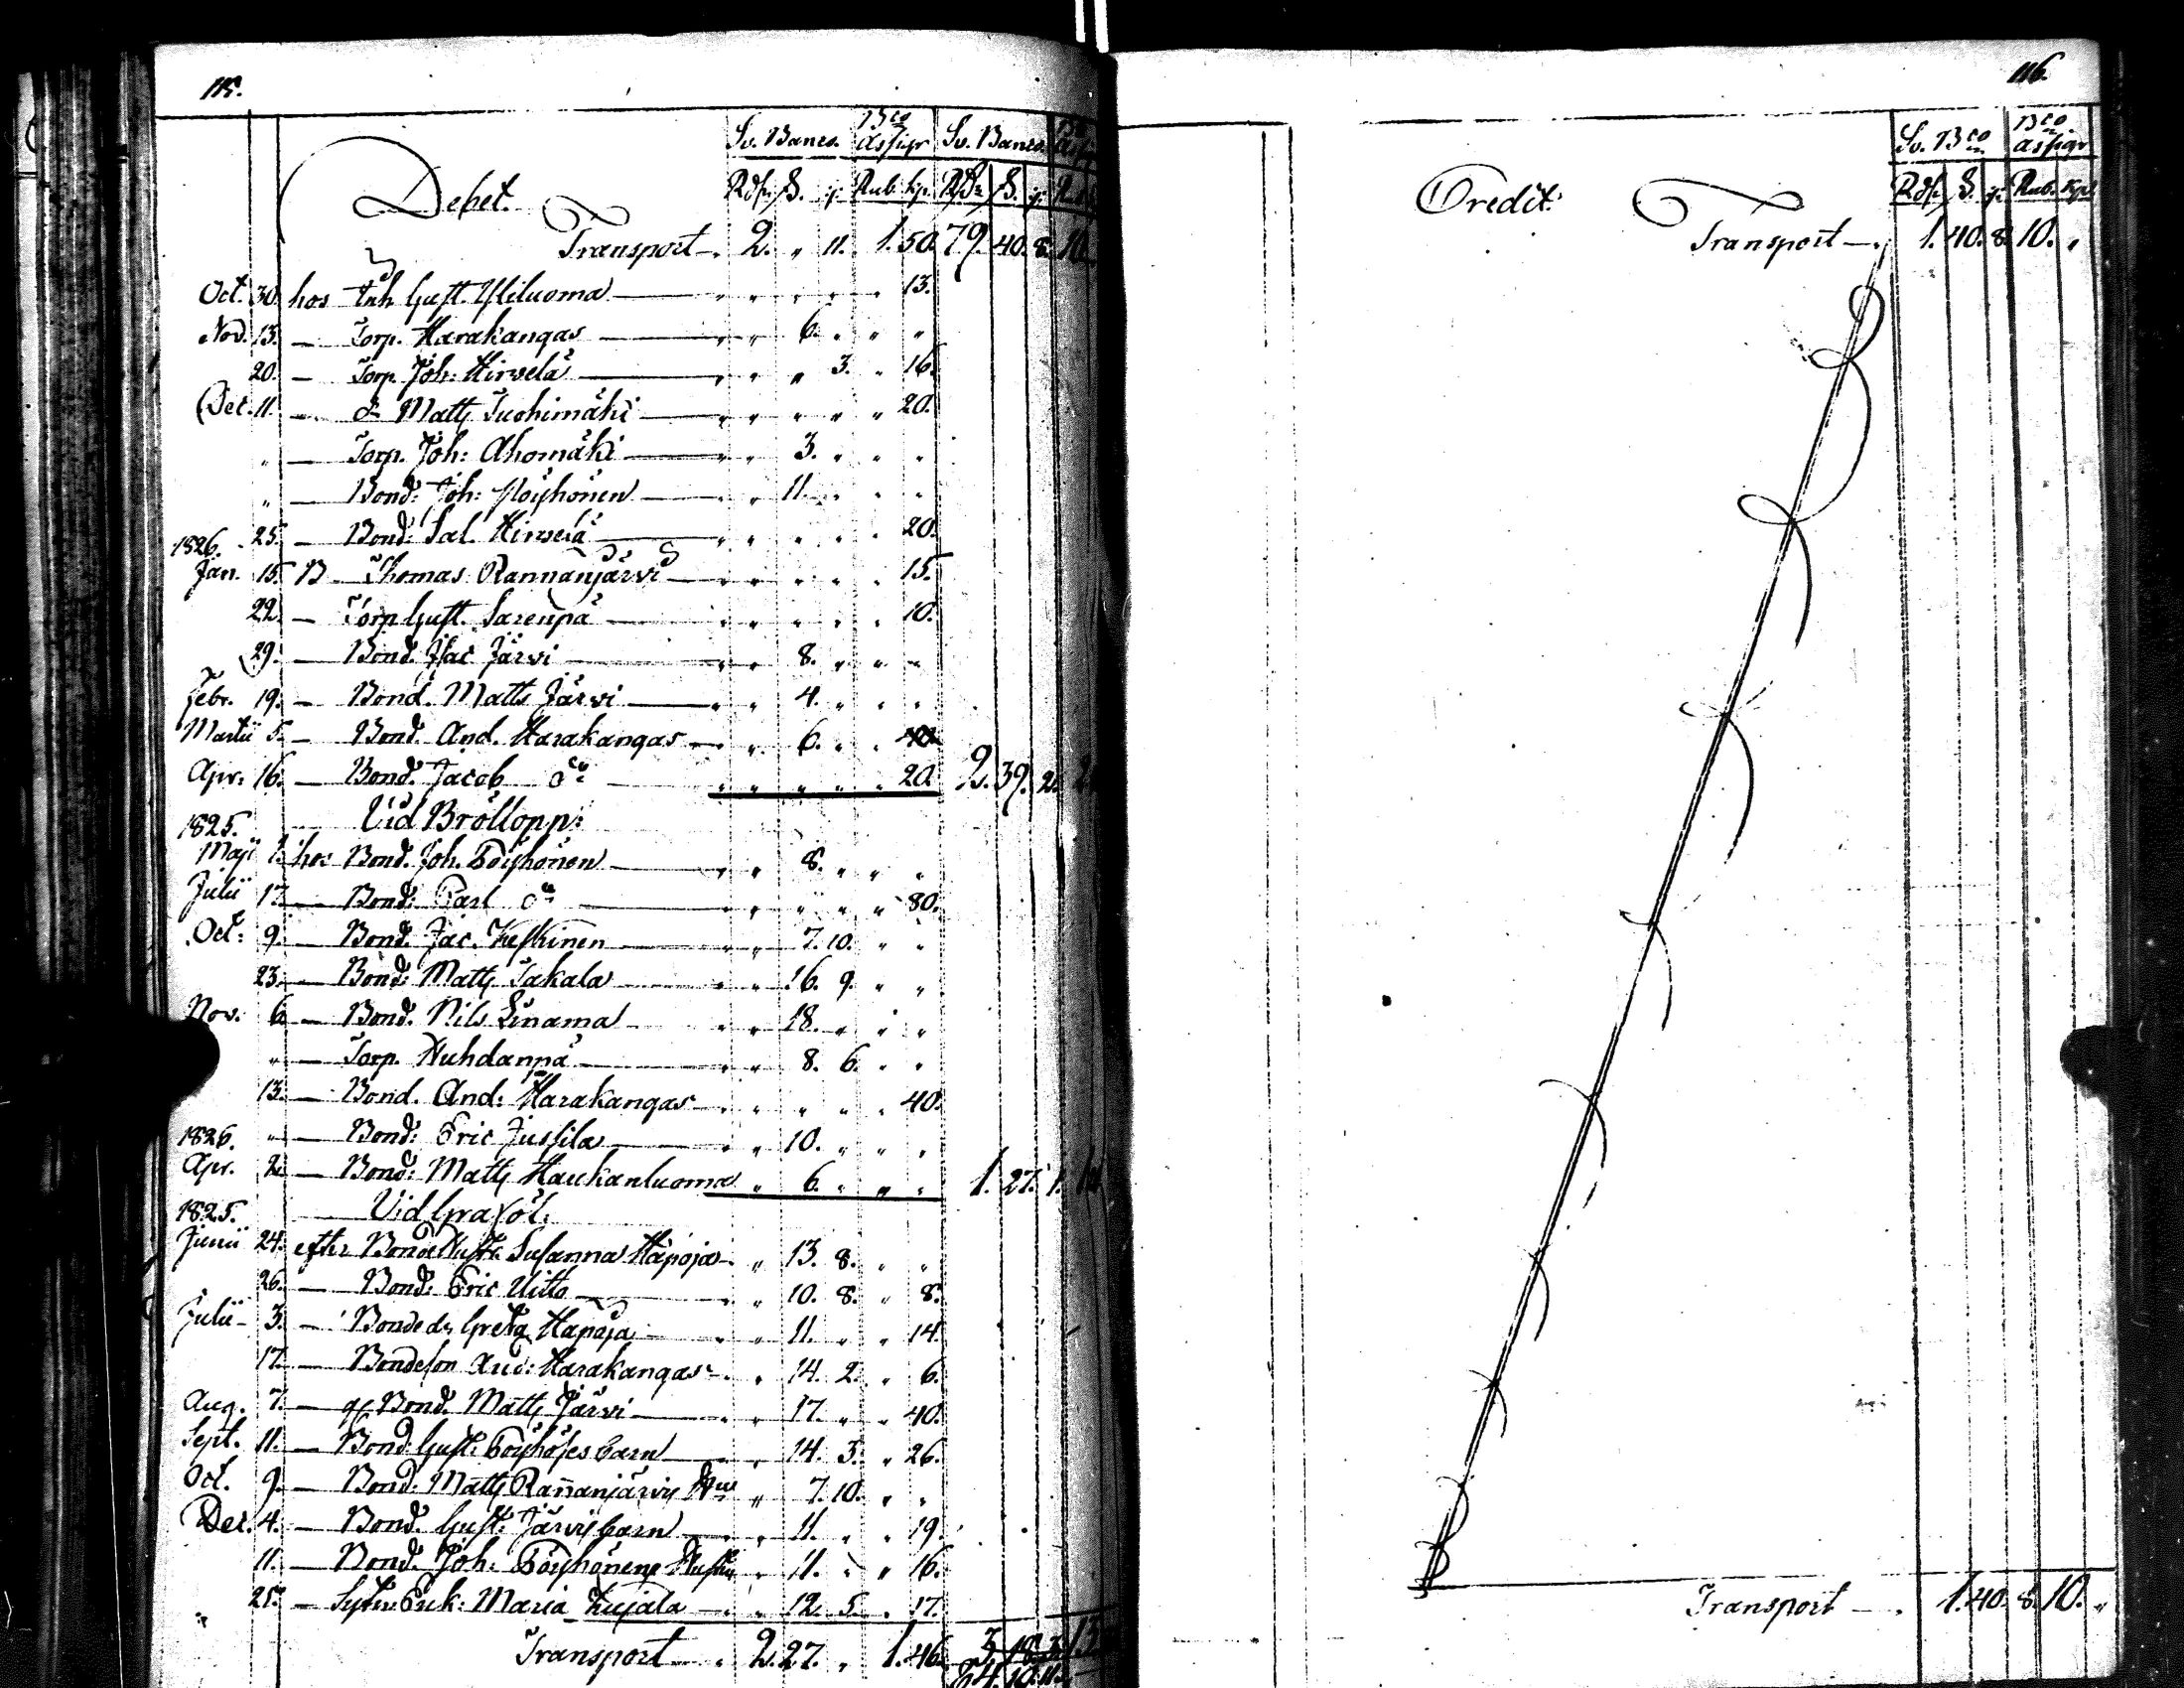 115.
Sv. Banco. Bco Assigr Sv. Banco.
Debet. Rdr. S. r. Rub. kp. Rdr S. r.
Transport —. 2. „ 11. 1. 50. 79. 40. 8. 10.
Oct. 30. hos Inh Gust. Yliluoma — „ „ „ „ 13.
Nov. 13. — Torp. Harakangas — „ 6. „ „ „
20. — Torp. Joh: Hirvelä — „ „ 3. „ 16.
Dec. 11. — do Matts Tuohimäki — „ „ „ „ 20.
„ — Torp. Joh: Ahomäki — „ 3. „ „ „
„ — Bond: Joh: Pöyhönen — „ 11. „ „ „
1826. 25. — Bond: Sal. Hirvelä — „ „ „ „ 20.
Jan. 15. B — Thomas Rannanjärvi — „ „ „ „ 15.
22. — Torp Gust. Sarenpä — „ „ „ „ 10.
29. — Bond. Isac Järvi — „ 8. „ „ „
Febr. 19. — Bond. Matts Järvi — „ 4. „ „ „
Martii 5. — Bond. And. Harakangas — „ 6. „ „
Apr. 16. — Bond. Jacob do — „ „ „ „ 20. 2. 39. 2.
1825. Vid Bröllopp:
Maji 1. hos Bond. Joh. Pöyhönen — „ 8. „ „ „
Julii 17. — Bond: Carl do — „ „ „ „ 80.
Oct: 9. — Bond. Jac. Keskinen — „ 7. 10. „ „
23. — Bond: Matts Takala — „ 16. 9. „ „
Nov. 6. — Bond. Nils Linama — „ 18. „ „ „
„ — Torp. Huhdanpä — „ 8. 6. „ „
13. — Bond. And: Harakangas — „ „ „ „ 40.
1826. „ — Bond: Eric Jussila — „ 10. „ „ „
Apr. 2. — Bond: Matts Haukanluoma „ 6. „ „ „ 1. 27. 1.
1825. Vid Graföl.
Junii 24. efter Bonde Hustr. Susanna Hapoja — „ 13. 8. „ „
26. — Bond: Eric Uitto — „ 10. 8. „ 8.
Julii 3. — Bonde dr Greta Hapoja — „ 11. „ „ 14.
17. — Bondeson And: Harakangas — „ 14. 2. „ 6.
Aug. 7. — gf. Bond. Matts Järvi — „ 17. „ „ 40.
Sept. 11. — Bond. Gust: Pöyhöses barn — „ 14. 3. „ 26.
Oct. 9. — Bond: Matts Rannanjärvis „ 7. 10. „ „
Dec. 4. — Bond. Gust: Järvis barn — „ 11. „ „ 19.
11. — Bond. Joh: Pöyhönens Hustru „ 11. „ „ 16.
25. — Maria Kujala — „ 12. 5. „ 17.
Transport — 2. 27. „ 1. 46. 3. 18. 3. 13
84. 10. 11.
116.
Sv. Bco Bco Assigr
Credit. Rdr. S. r. Rub. kp.
Transport —. 1. 40. 8. 10. „
Transport —. 1. 40. 8. 10. „